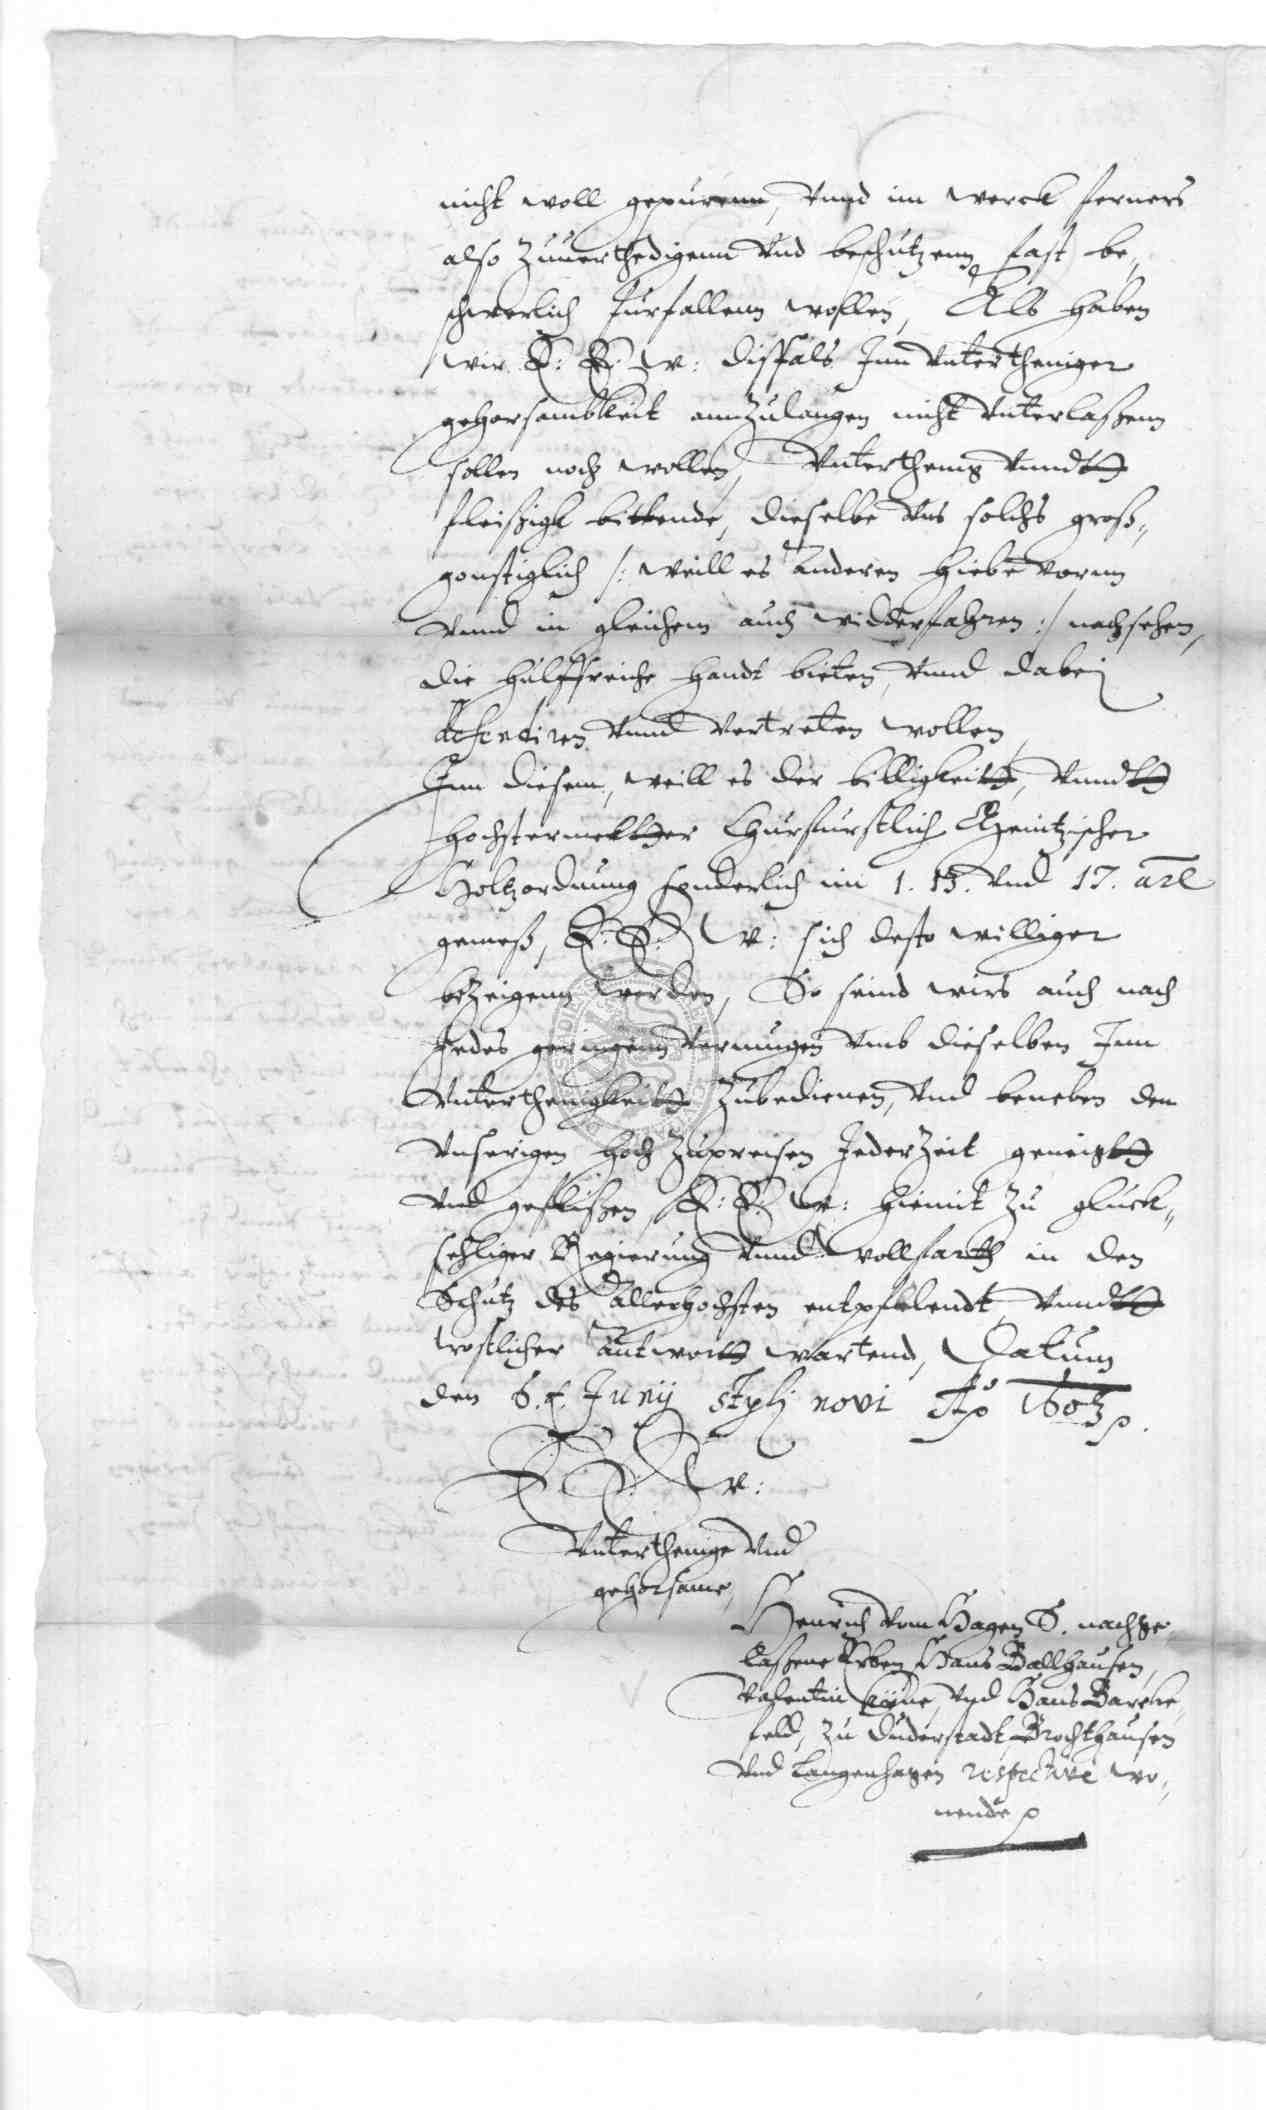 nicht woll gepurenn, Vnnd im werck ferners
also Zuuerthedigenn Vnd beschutzenn fast be„
schwerlich furfallenn wollen, Als haben
wir E: E: W: dissfals Inn Vntertheniger
gehorsambkeit annzulangen nicht Vnterlaßenn
sollen noch wollen, Vnterthenig Vnndt
fleißigk bittende, dieselbe Vns solchs groß„
gonstiglich /: weill es anderen hiebe vornn
Vnnd in gleichem auch widderfahren :/ nachsehen,
die hulffreiche handt bieten, Vnnd dabei
defendiren Vnnd Vertreten wollen
Inn diesem, weill es der billigkeitt, Vnndt
hochstermeltter Churfurstlich Meintzischer
Holtzordnung sonderlich im 1. 13. Vnd 17. arl
gemeß, E: E: W: sich desto williger
beZeigenn werden, So seind wirs auch nach
Jedes geringenn Vermugen Vmb dieselben Inn
Vnterthenigkeitt Zubedienen, Vnd beneben den
Vnserigen hoch Zupreisen JederZeit geneigtt
Vnd geflißen, E: E: W: hiemit Zu gluck„
sehliger Regierung Vnnd wollfarth in den
Schutz des allerhochsten entpfhelendt, Vnndt
trostlicher antwortt wartend, Datum
den 6. Junij styli novi Ao 1603.
E: E: W:
Vnterthenige Vnd
gehorsame,
Henrich vom Hagen S. nachge„
laßene Erben Hans Ballhausen,
Valentin Kühne, Vnd Hans Barcke„
feld, Zu Duderstadt, Brochthausen
Vnd Langenhagen respective wo„
nende